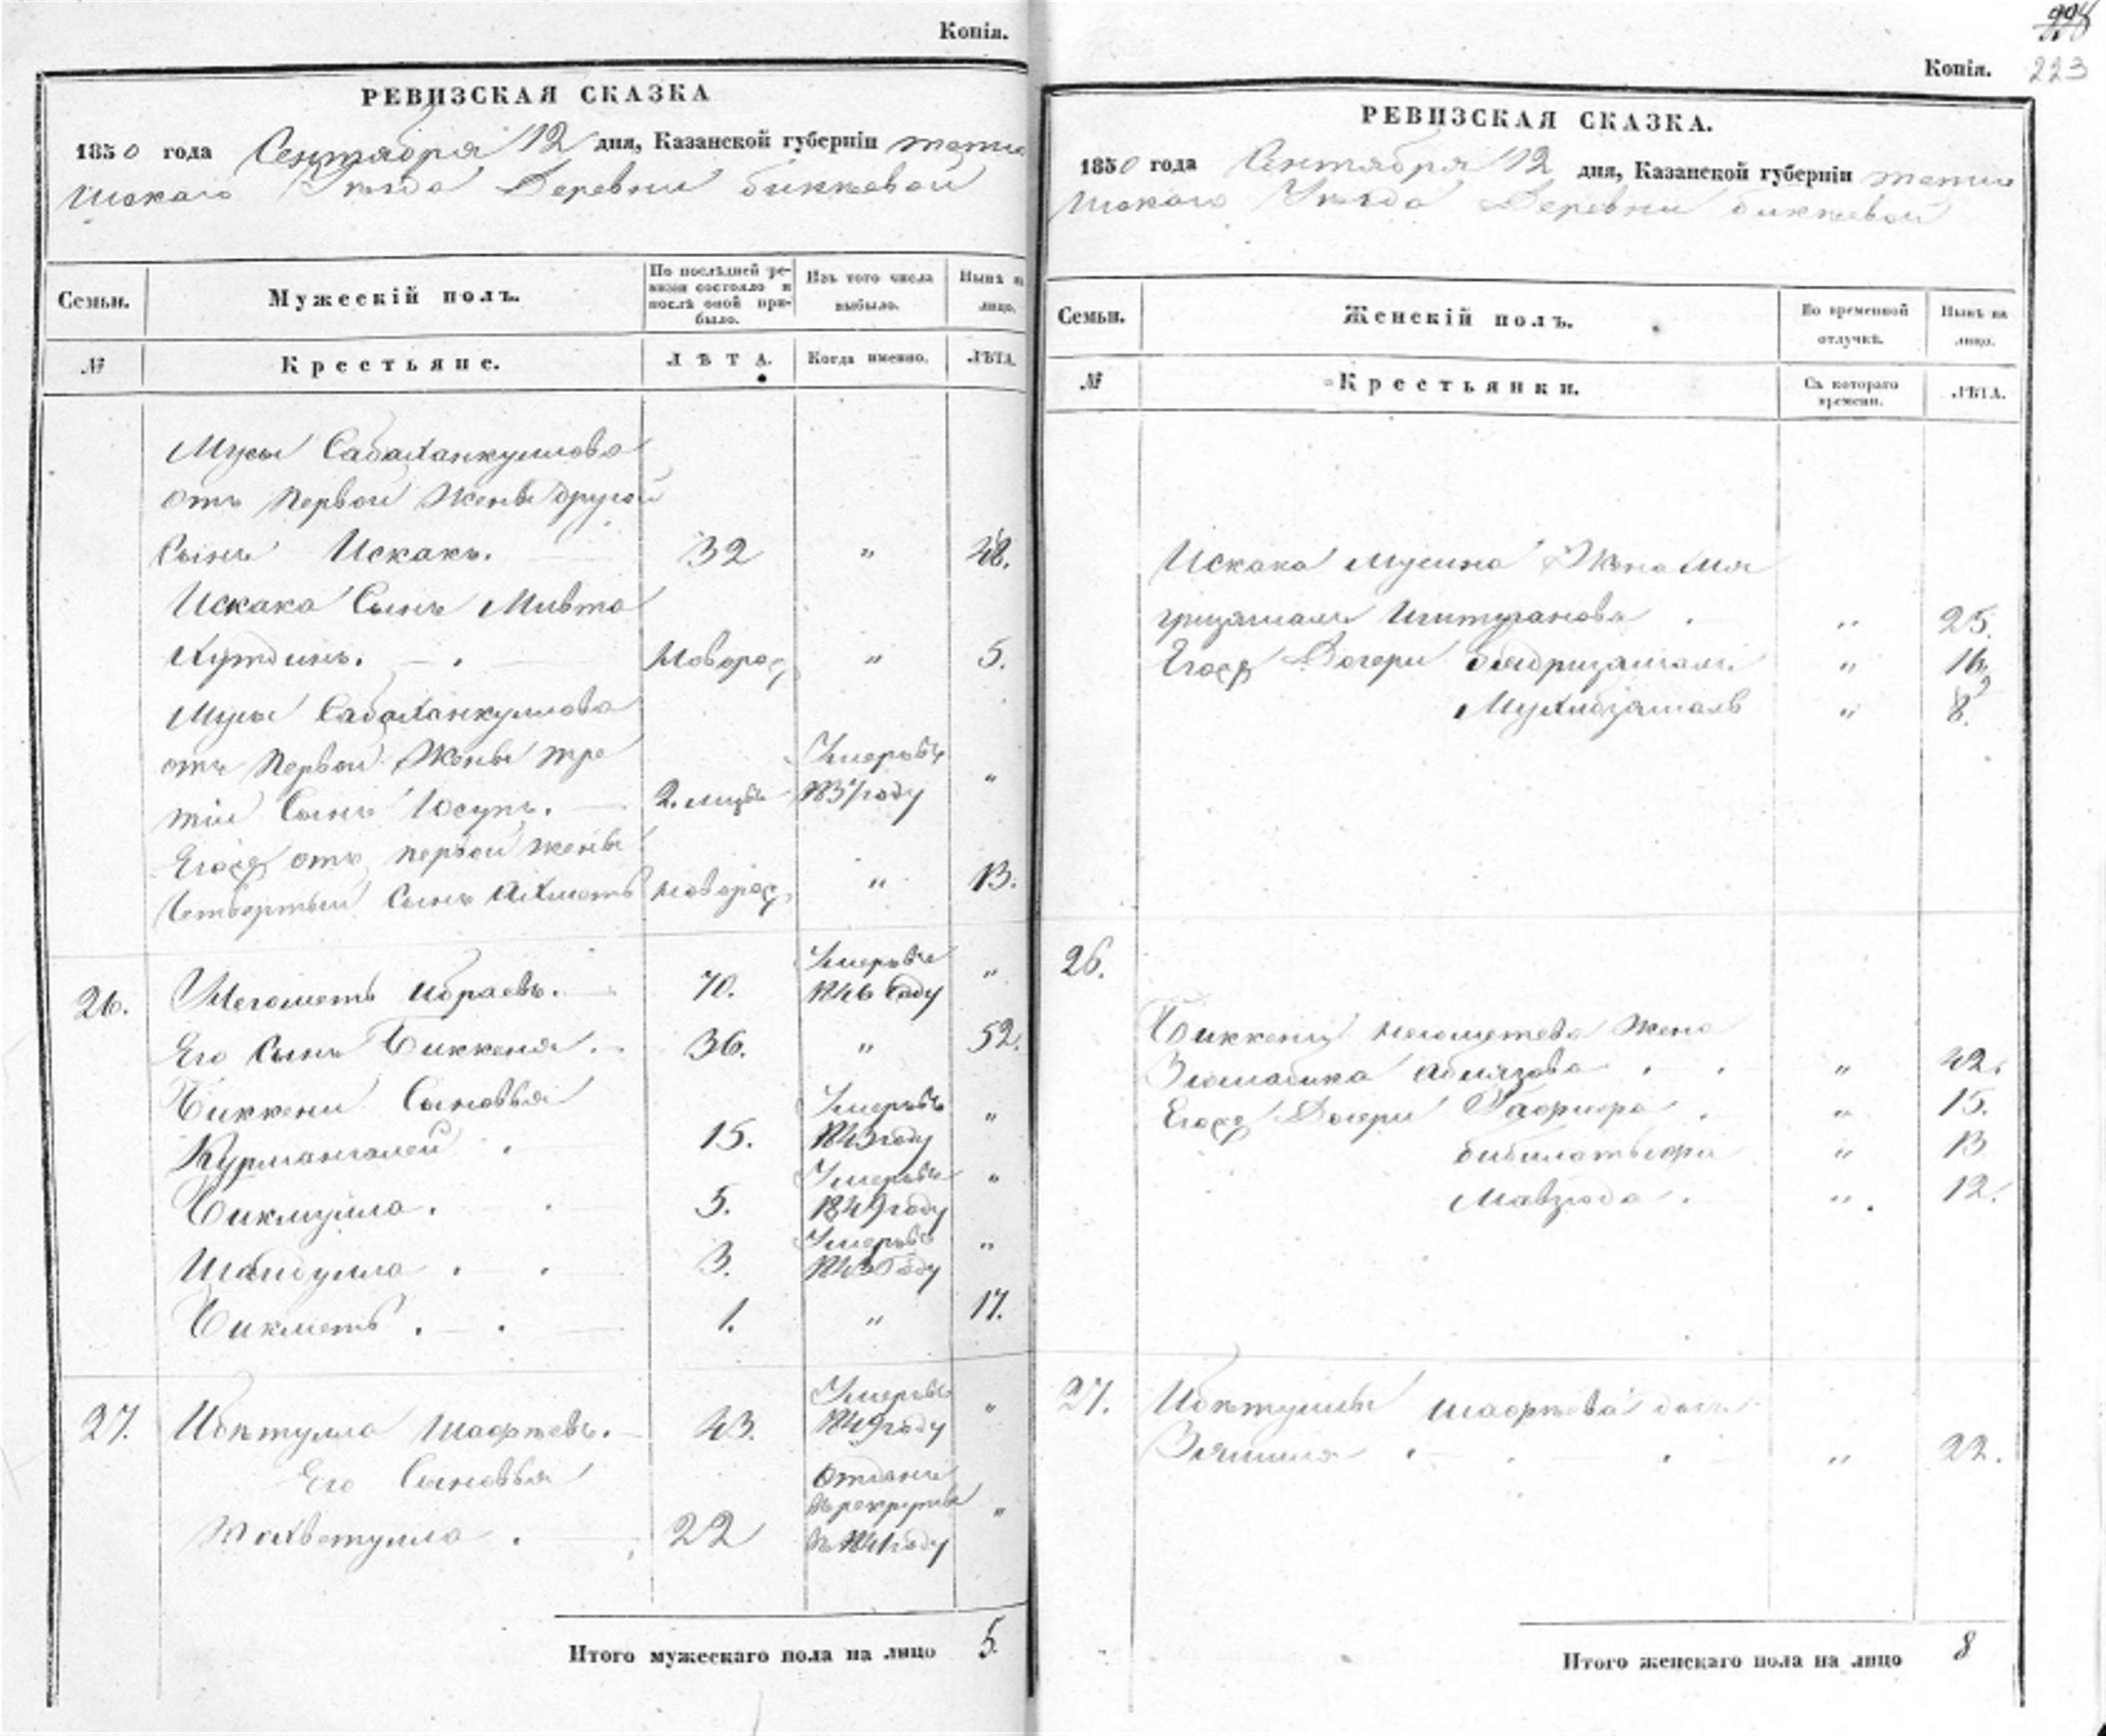 Копія.
РЕВИЗСКАЯ СКАЗКА
1850 года Сентября 12 дня, Казанской губерніи тетю
шскаго Уѣзда Деревни бикѣевой
Семьи.
Мужескій полъ.
По послѣдней ре-
визіи состояло и
послѣ оной при-
было.
Изъ того числа
выбыло.
Нынѣ на
лицо.
№
Крестьяне.
ЛѢТА.
Когда именно.
ЛѢТА.
Мусы Сабаханкулова
отъ первой Жены другой
Сынъ Искакъ. 32 " 48.
Искака Сынъ Мивта
хутдинъ. новорож " 5.
Мусы Сабаханкулова
отъ первой Жены тре
тій Сынъ Юсупъ. 2. мцы Умеръ въ 1837 году "
Егоже отъ первой жены
четвертый Сынъ Ахметъ новорож " 13.
26. Негометъ Ибраевъ. 70. Умеръ въ 1846 году "
Его Сынъ Биккеня. 36. " 52.
Биккени Сыновья
Курмангалей 15. Умеръ въ 1843 году "
Бикмулла. 5. Умеръ въ 1849 году "
3. Умеръ въ 1843 году "
Бикметь. 1. " 17.
27. Ибетулла Шафѣевъ. 43. Умеръ въ 1849 году "
Его Сыновья
22 Отданъ въ рекруты въ 1841 году "
Итого мужескаго пола на лицо 5.
223
Копія.
РЕВИЗСКАЯ СКАЗКА.
1850 года Сентября 12 дня, Казанской губерніи тетю
шскаго Уѣзда Деревни бикѣевой
Семьи.
Женскій полъ.
Во временной
отлучкѣ.
Нынѣ на
лицо.
№
Крестьянки.
Съ котораго
времени.
ЛѢТА.
Искака Мусина Жена Мя
гризямалъ Ишмуганова. " 25.
Егоже Дочери Бядризямалъ " 16,
Мухибзямалъ " 8.
26.
Биккени негометева Жена
Зюмабика Абнязова " 42.
Егоже Дочери " 15.
" 13
Мавзюда. " 12.
27. Ибетуллы Шафѣева дочь
" 22.
Итого женскаго пола на лицо 8